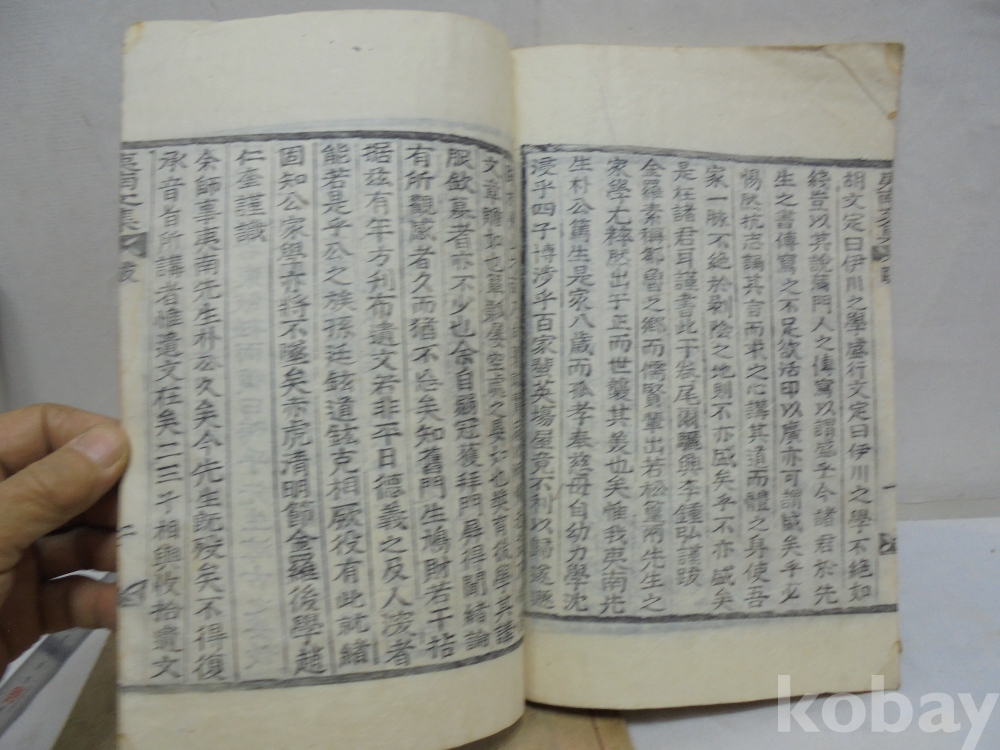 胡文定曰伊川之學盛行文定曰伊川之學不絕如
綫豈以其說廣門人之傳寫以謂盛乎今諸君於先
生之書傳寫之不足欲活印以廣亦可謂盛矣乎必
惕然抗志誦其言而求之心講其道而體之身使吾
家一脉不絕於剝陰之地則不亦盛矣乎不亦盛矣
是在諸君耳謹書此于卷尾爾驪興李鍾弘謹跋
金羅素稱鄒魯之鄉而儒賢輩出若松篁兩先生之
家學尤粹然出于正而世襲其美也矣惟我夷南先
生朴公舊生是家八歲而孤孝奉慈母自幼力學沈
浸乎四子博涉乎百家蜚英塲屋竟不利以歸遂
文章
服歆慕者亦不少也余自弱冠獲拜門屏得聞緖論
有所觀感者久而猶不忘矣知舊門生鳩財若干拮
据玆有年方刋布遺文若非平日德義之及人深者
能若是乎公之族孫廷鉉道鉉克相厥役有此就緖
固知公家學亦將不墜矣亦虎清明節金羅後學趙
仁奎謹識
余師事夷南先生朴公久矣今先生旣歿矣不得復
承音旨所講者惟遺文在矣二三子相與收拾遺文
夷南文集 跋
二
kobay